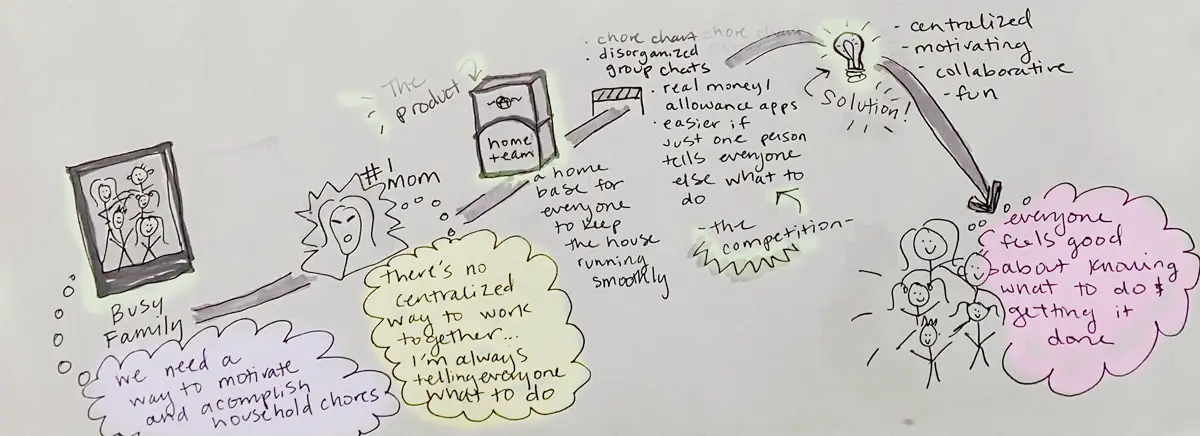 Busy
Family
we need a
way to motivate
and acomplish
household chores
#1
Mom
there's no
centralized
way to work
together...
I'm always
telling everyone
what to do
The
product
home
team
a home
base for
everyone
to keep
the house
running
smoothly
· chore chart
· disorganized
group chats
· real money/
allowance apps
· easier if
just one person
tells everyone
else what to
do
-the
competition-
Solution!
- centralized
- motivating
- collaborative
- fun
everyone
feels good
about knowing
what to do &
getting it
done